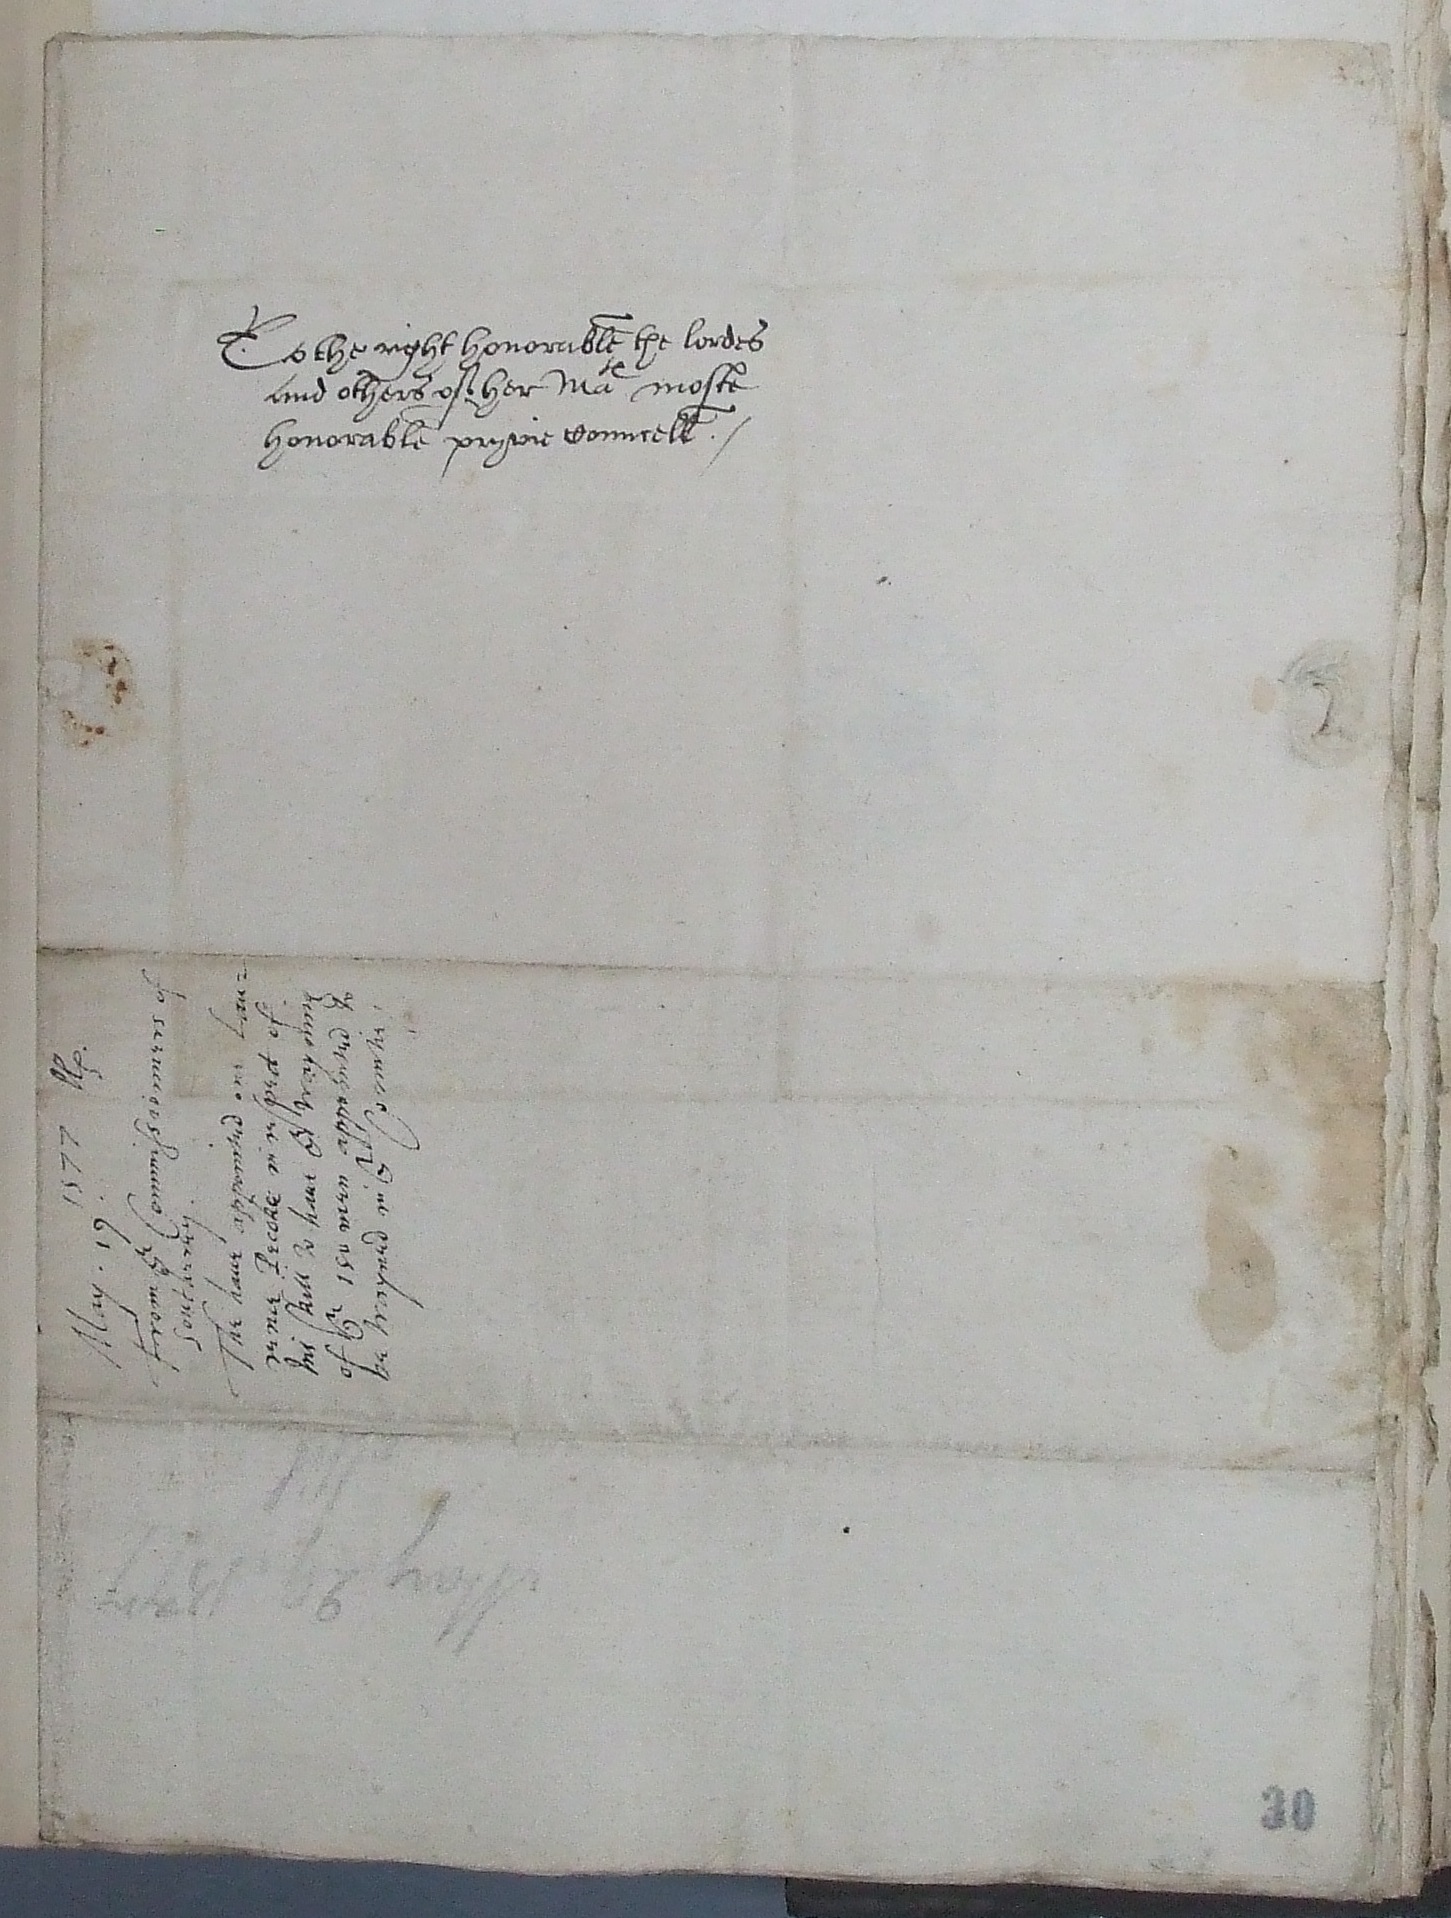 To the right honorable the lordes
and others of her Ma^te moste
honorable pryvie counsell ./
May . 19 . 1577
from y^e Commissioners of
The haue appointed one Lau=
rence in respect of
his skill to haue y^e trayning
of y^e 150 men appoynted to
be trayned in y^t
May 29 1577
30